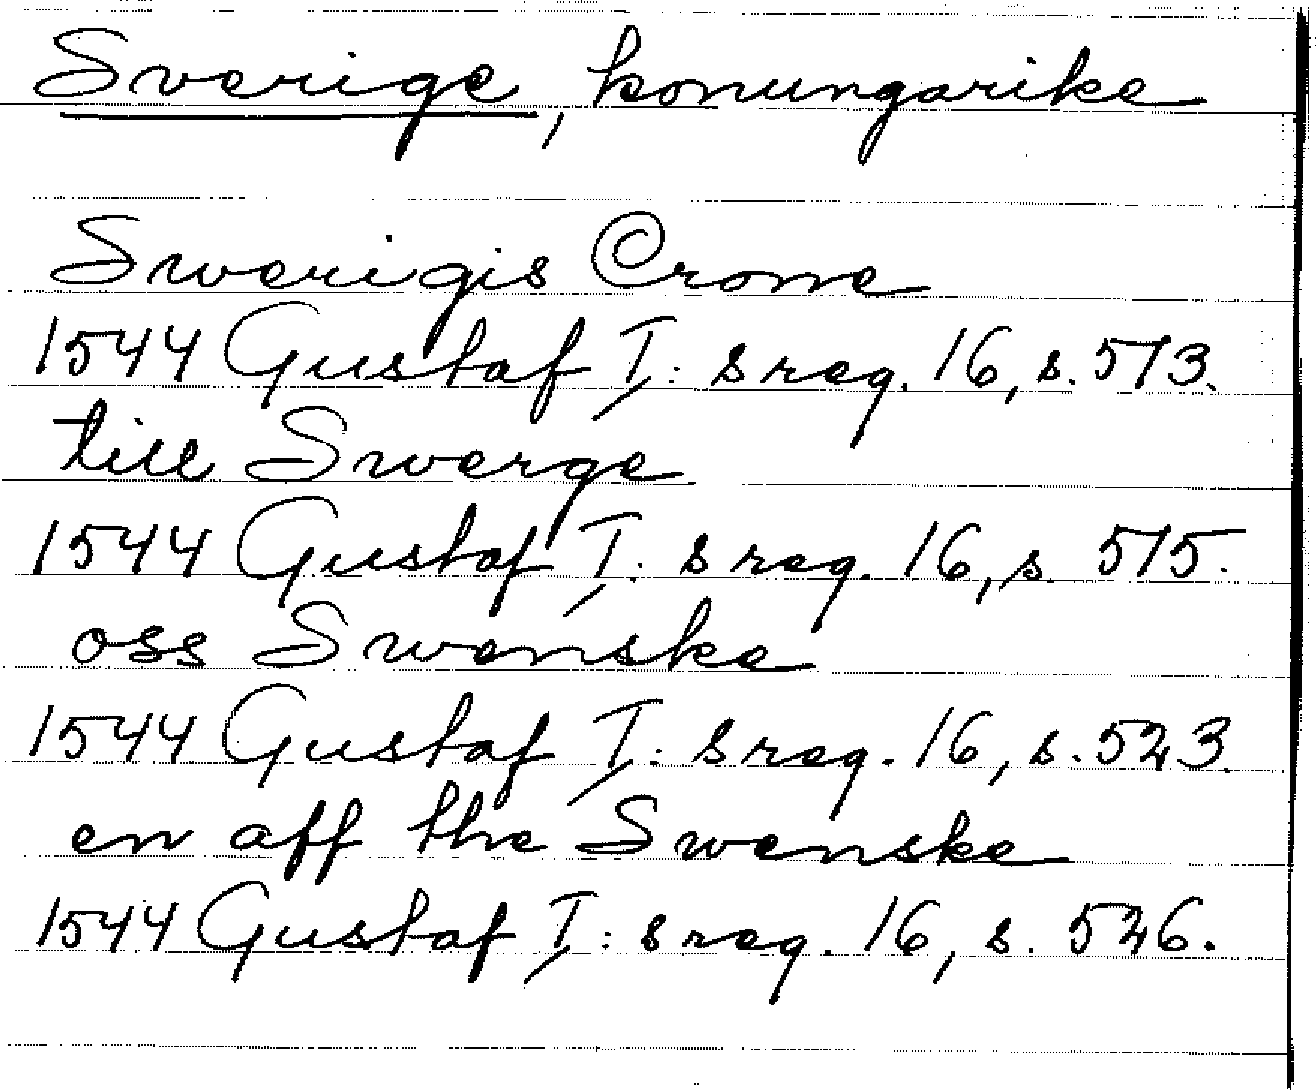 Sverige, konungarike
Swerigis Crone
1544 Gustaf I:s reg. 16, s. 513.
till Swerge
1544 Gustaf I:s reg. 16, s. 515.
oss Swenske
1544 Gustaf I:s reg. 16, s. 523.
en aff the Swenske
1544 Gustaf I:s reg. 16, s. 526.